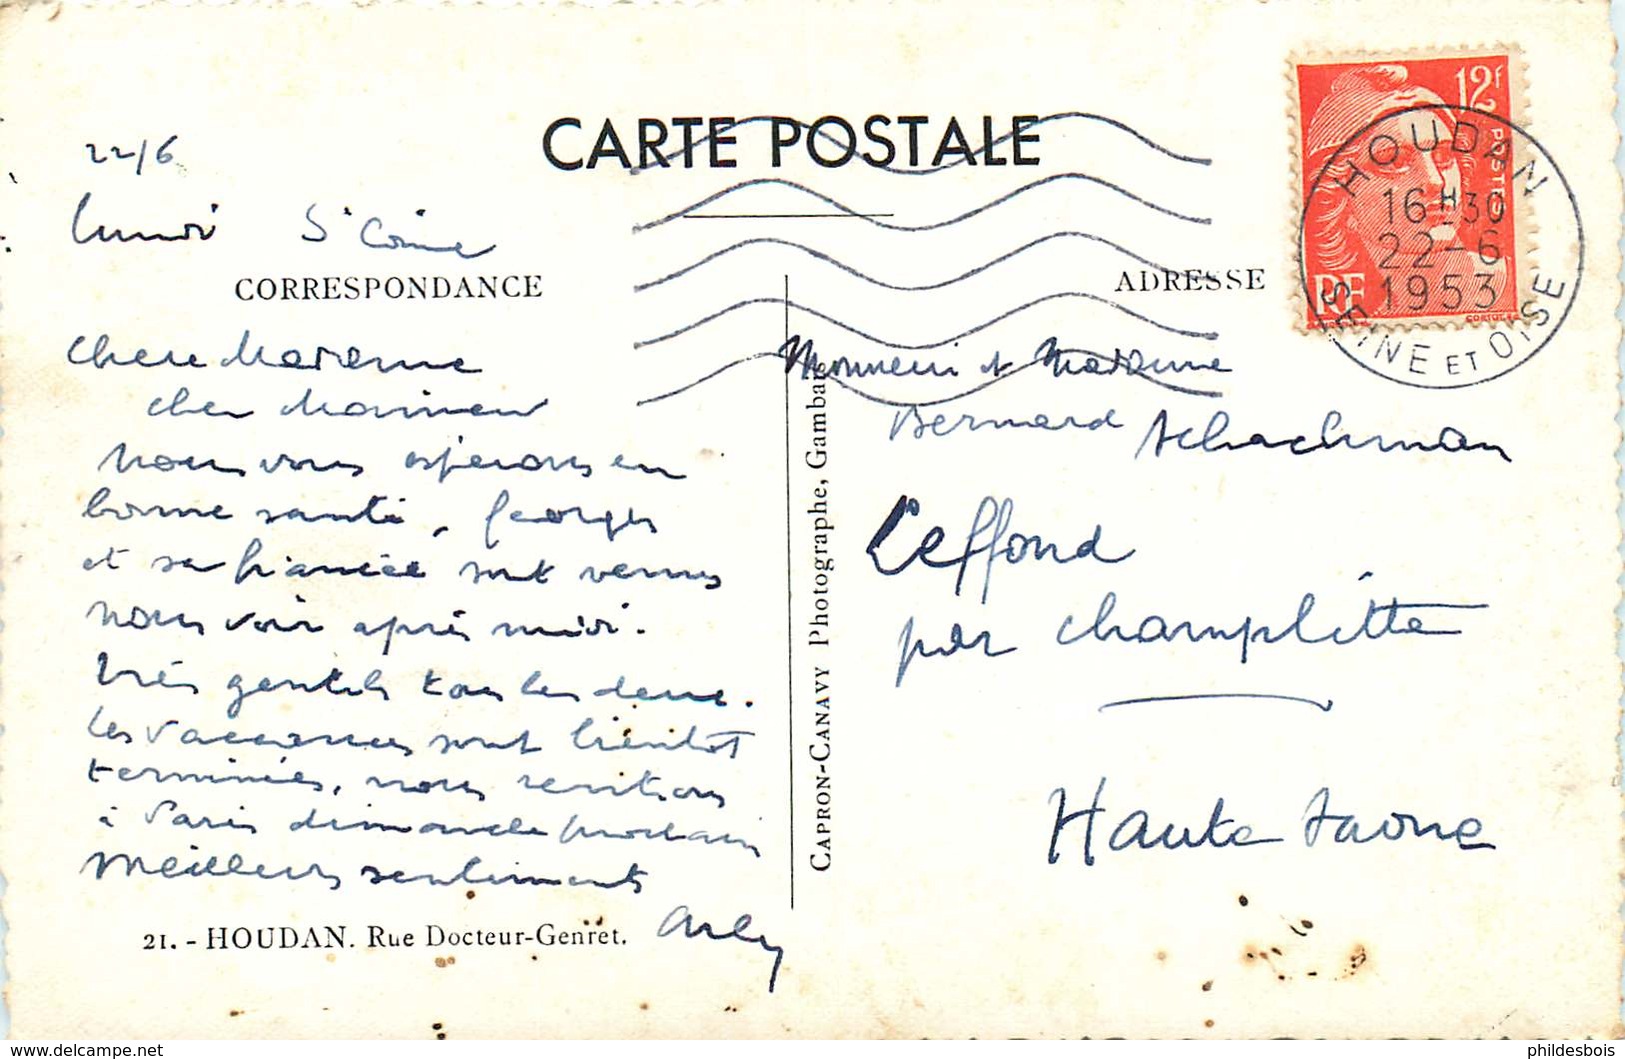 CARTE POSTALE
22/6
Lundi St Côme
CORRESPONDANCE
Chere Madame
cher Monsieur
Nous vous espérons en
bonne santé, Georges
et sa fiancée sont venus
nous voir après midi.
très gentils tous les deux.
Les vacances sont bientôt
terminées, nous rentrons
à Paris dimanche prochain
Meilleurs sentiments
21. - HOUDAN. Rue Docteur-Genret.
CAPRON-CANAVY Photographe, Gambais
ADRESSE
Monsieur et Madame
Bernard Schachman
Leffond
par Champlitte
Haute Saone
12f
POSTES
RF
HOUDAN
16H30
22-6
1953
SEINE ET OISE
delcampe.net
phildesbois